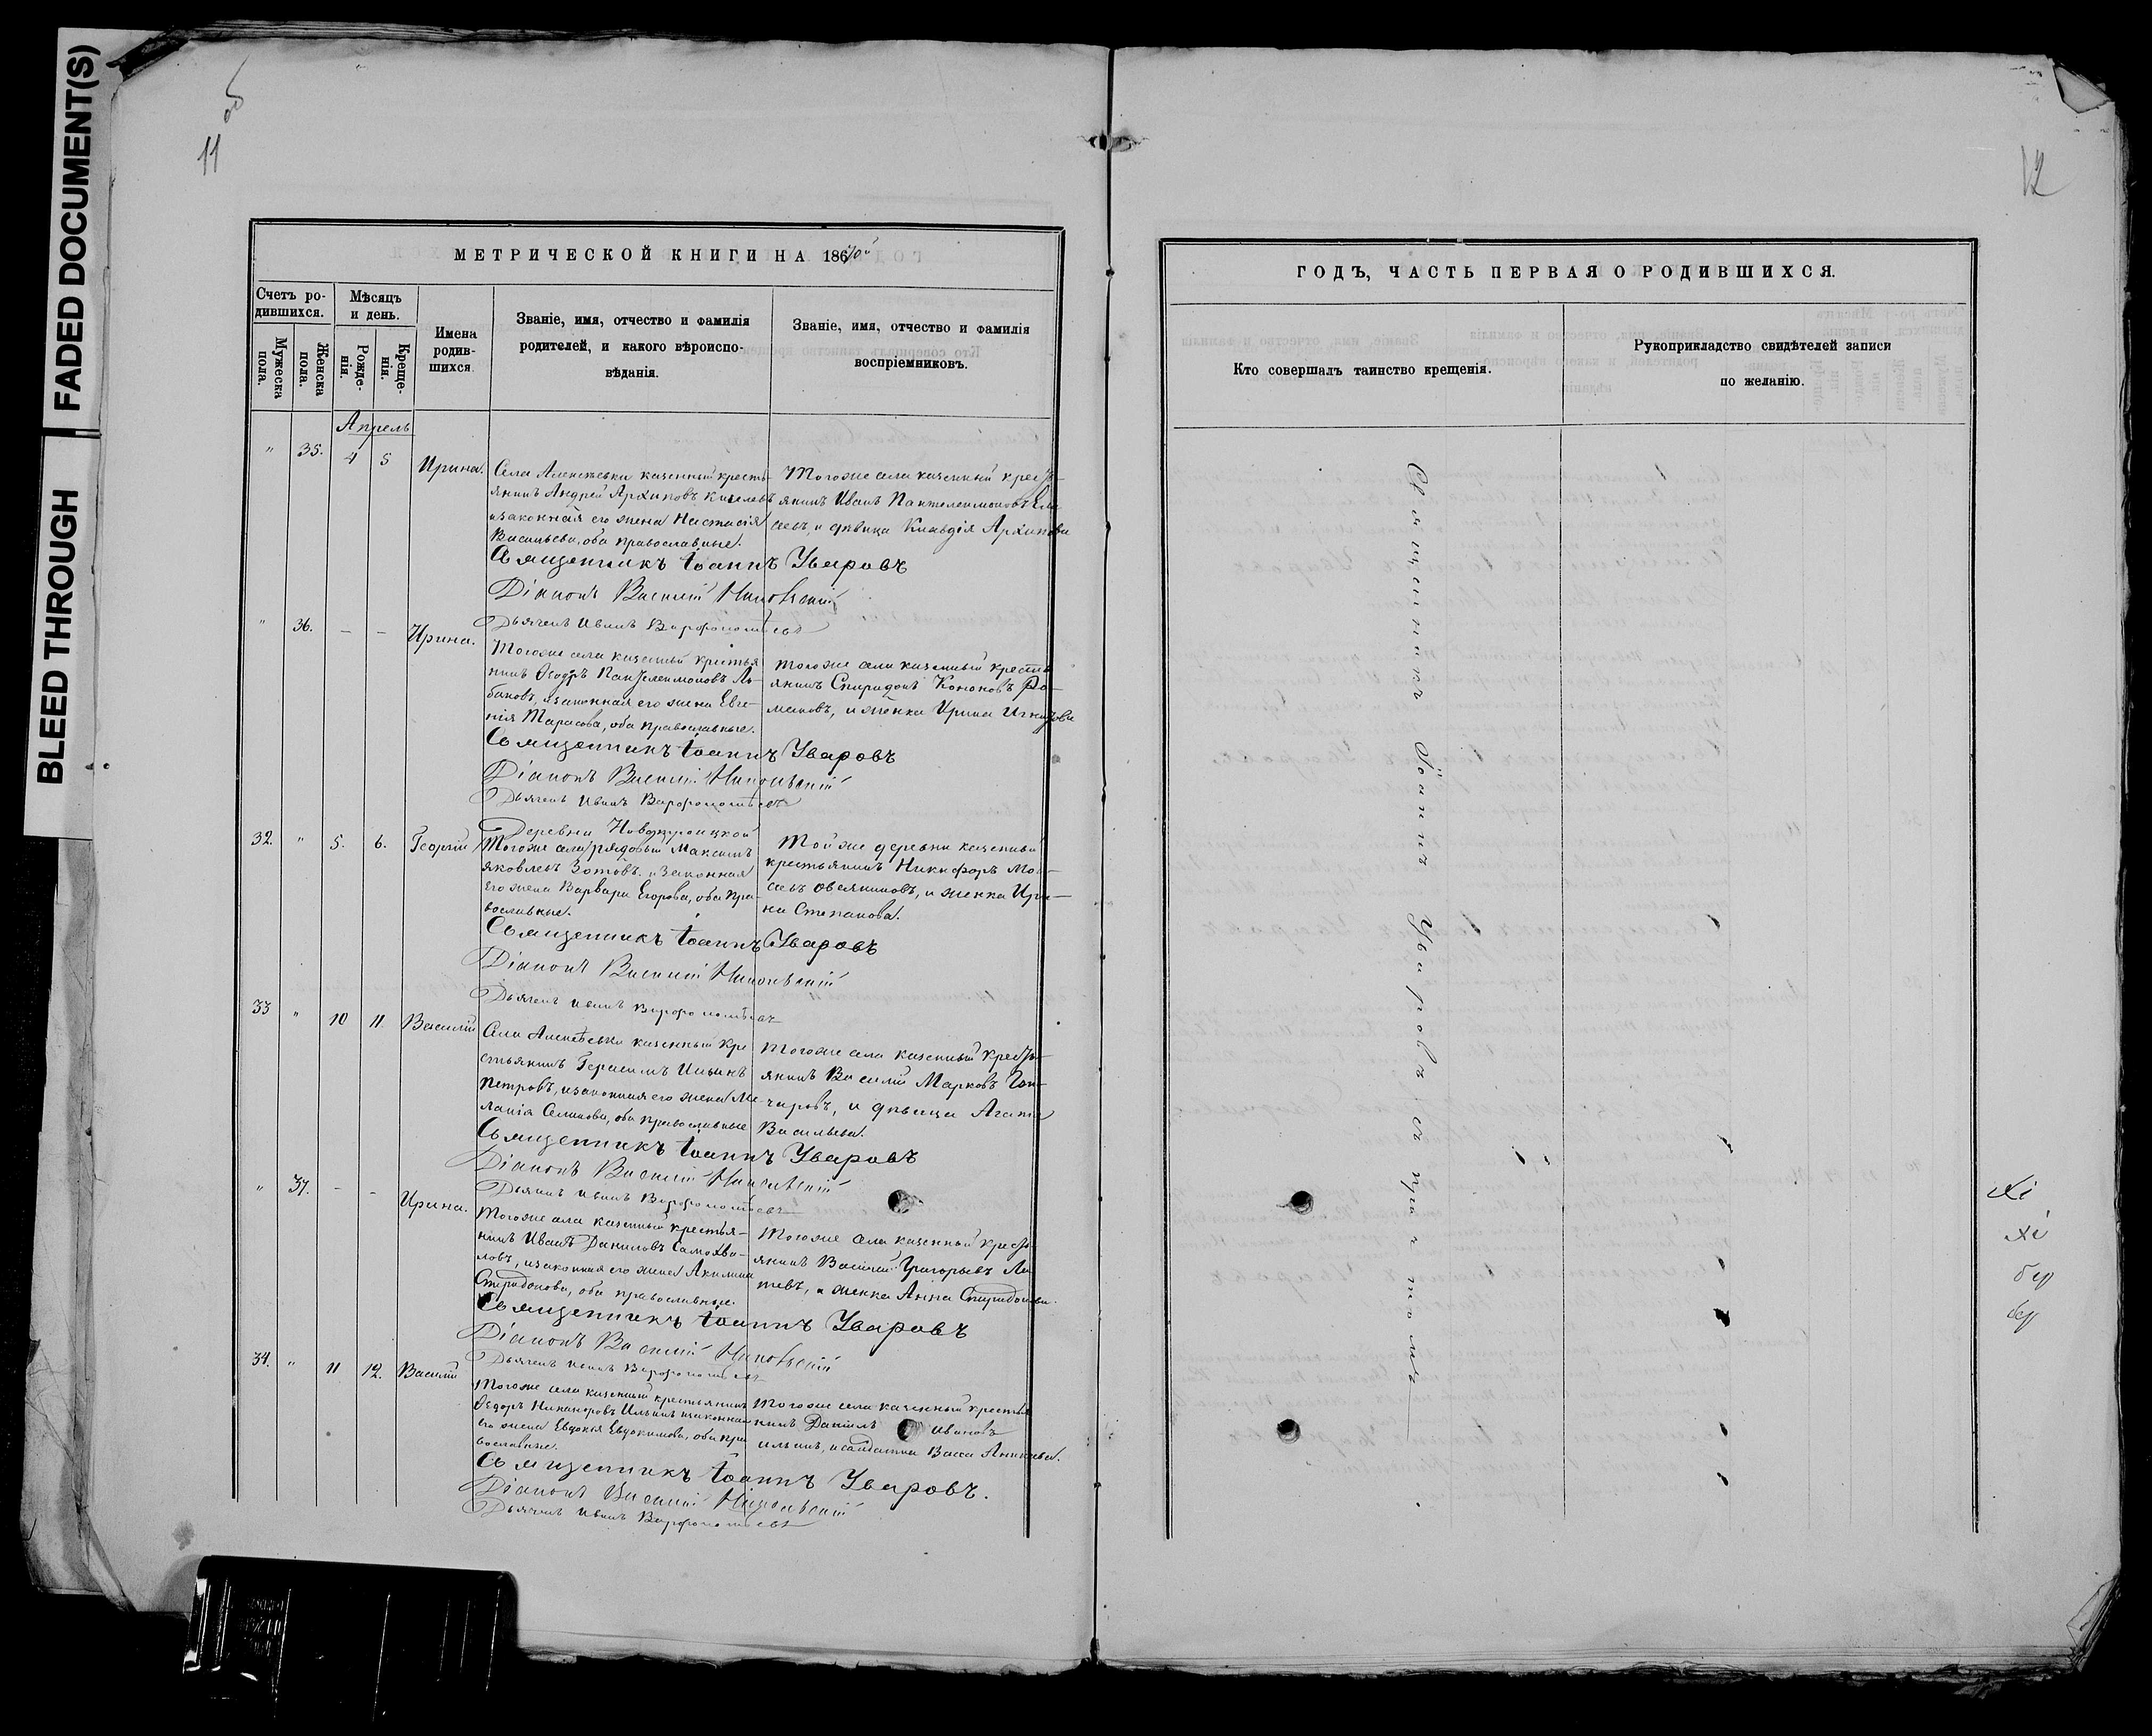 FADED DOCUMENT(S)
BLEED THROUGH
11 об
МЕТРИЧЕСКОЙ КНИГИ НА 1870й
Счетъ родившихся.
Мужеска пола.
Женска пола.
Мѣсяцъ и день.
Рожденія.
Крещенія.
Имена
родив-
шихся.
Званіе, имя, отчество и фамилія
родителей, и какого вѣроиспо-
вѣданія.
Званіе, имя, отчество и фамилія
воспріемниковъ.
Апрель
" 35. 4 5 Ирина.
Села казенный кресть-
янинъ Андрей Архиповъ Киселевъ
и законная его жена Настасія
Васильева, оба православные.
Тогоже села казенный кресть-
янинъ Иванъ Пантелеимоновъ
и дѣвица Клавдія Архипова
Священникъ Іоаннъ Уваровъ
Діаконъ Василій
Дьячекъ Иванъ Варфоломѣевъ
" 36. - - Ирина.
Тогоже села казенный крестья
нинъ Ѳеодръ Пантелеимоновъ
и законная его жена Евге-
нія Тарасова, оба православные.
тогоже села казенный кресть
янинъ Спиридонъ Кононовъ Ро-
мановъ, и женка Ирина Игнатова
Священникъ Іоаннъ Уваровъ
Діаконъ Василій
Дьячекъ Иванъ Варфоломѣевъ
32. " 5. 6. Георгій
Деревни Новотроицкой
Тогоже села рядовый Максимъ
Яковлевъ Зотовъ и законная
его жена Варвара Егорова, оба пра-
вославные.
Тойже деревни казенный
крестьянинъ Никифоръ Мо-
сеевъ Овсянниковъ, и женка Ири-
на Степанова.
Священникъ Іоаннъ Уваровъ
Діаконъ Василій
Дьячекъ Иванъ Варфоломѣевъ
33 " 10 11 Василій
Села Алексѣевки казенный кре
стьянинъ Герасимъ Ильинъ
Петровъ, и законная его жена Ме-
ланія оба православные
Тогоже села казенный кресть-
янинъ Василій Марковъ Гон-
чаровъ, и дѣвица Агапія
Васильева.
Священникъ Іоаннъ Уваровъ
Діаконъ Василій
Дьячекъ Иванъ Варфоломѣевъ
" 37. - - Ирина.
Тогоже села казенный крестья-
нинъ Иванъ Даниловъ Самохва-
ловъ, и законная его жена Акилина
Спиридонова, оба православные.
Тогоже села казенный кресть-
янинъ Василій Григорьевъ
и женка Анна Спиридонова.
Священникъ Іоаннъ Уваровъ
Діаконъ Василій
Дьячекъ Иванъ Варфоломѣевъ
34. " 11 12. Василій
Тогоже села казенный крестьянинъ
Ѳедоръ Никаноровъ Ильинъ и законная
его жена Евдокія Евдокимова, оба пра
вославные.
Тогоже села казенный крестья
нинъ Даніилъ Ивановъ
Ильинъ, и солдатка Васса Аникиева.
Священникъ Іоаннъ Уваровъ.
Діаконъ Василій
Дьячекъ Иванъ Варфоломѣевъ
12
ГОДЪ, ЧАСТЬ ПЕРВАЯ О РОДИВШИХСЯ.
Кто совершалъ таинство крещенія.
Рукоприкладство свидѣтелей записи
по желанію.
Священникъ Іоаннъ Уваровъ съ причтомъ